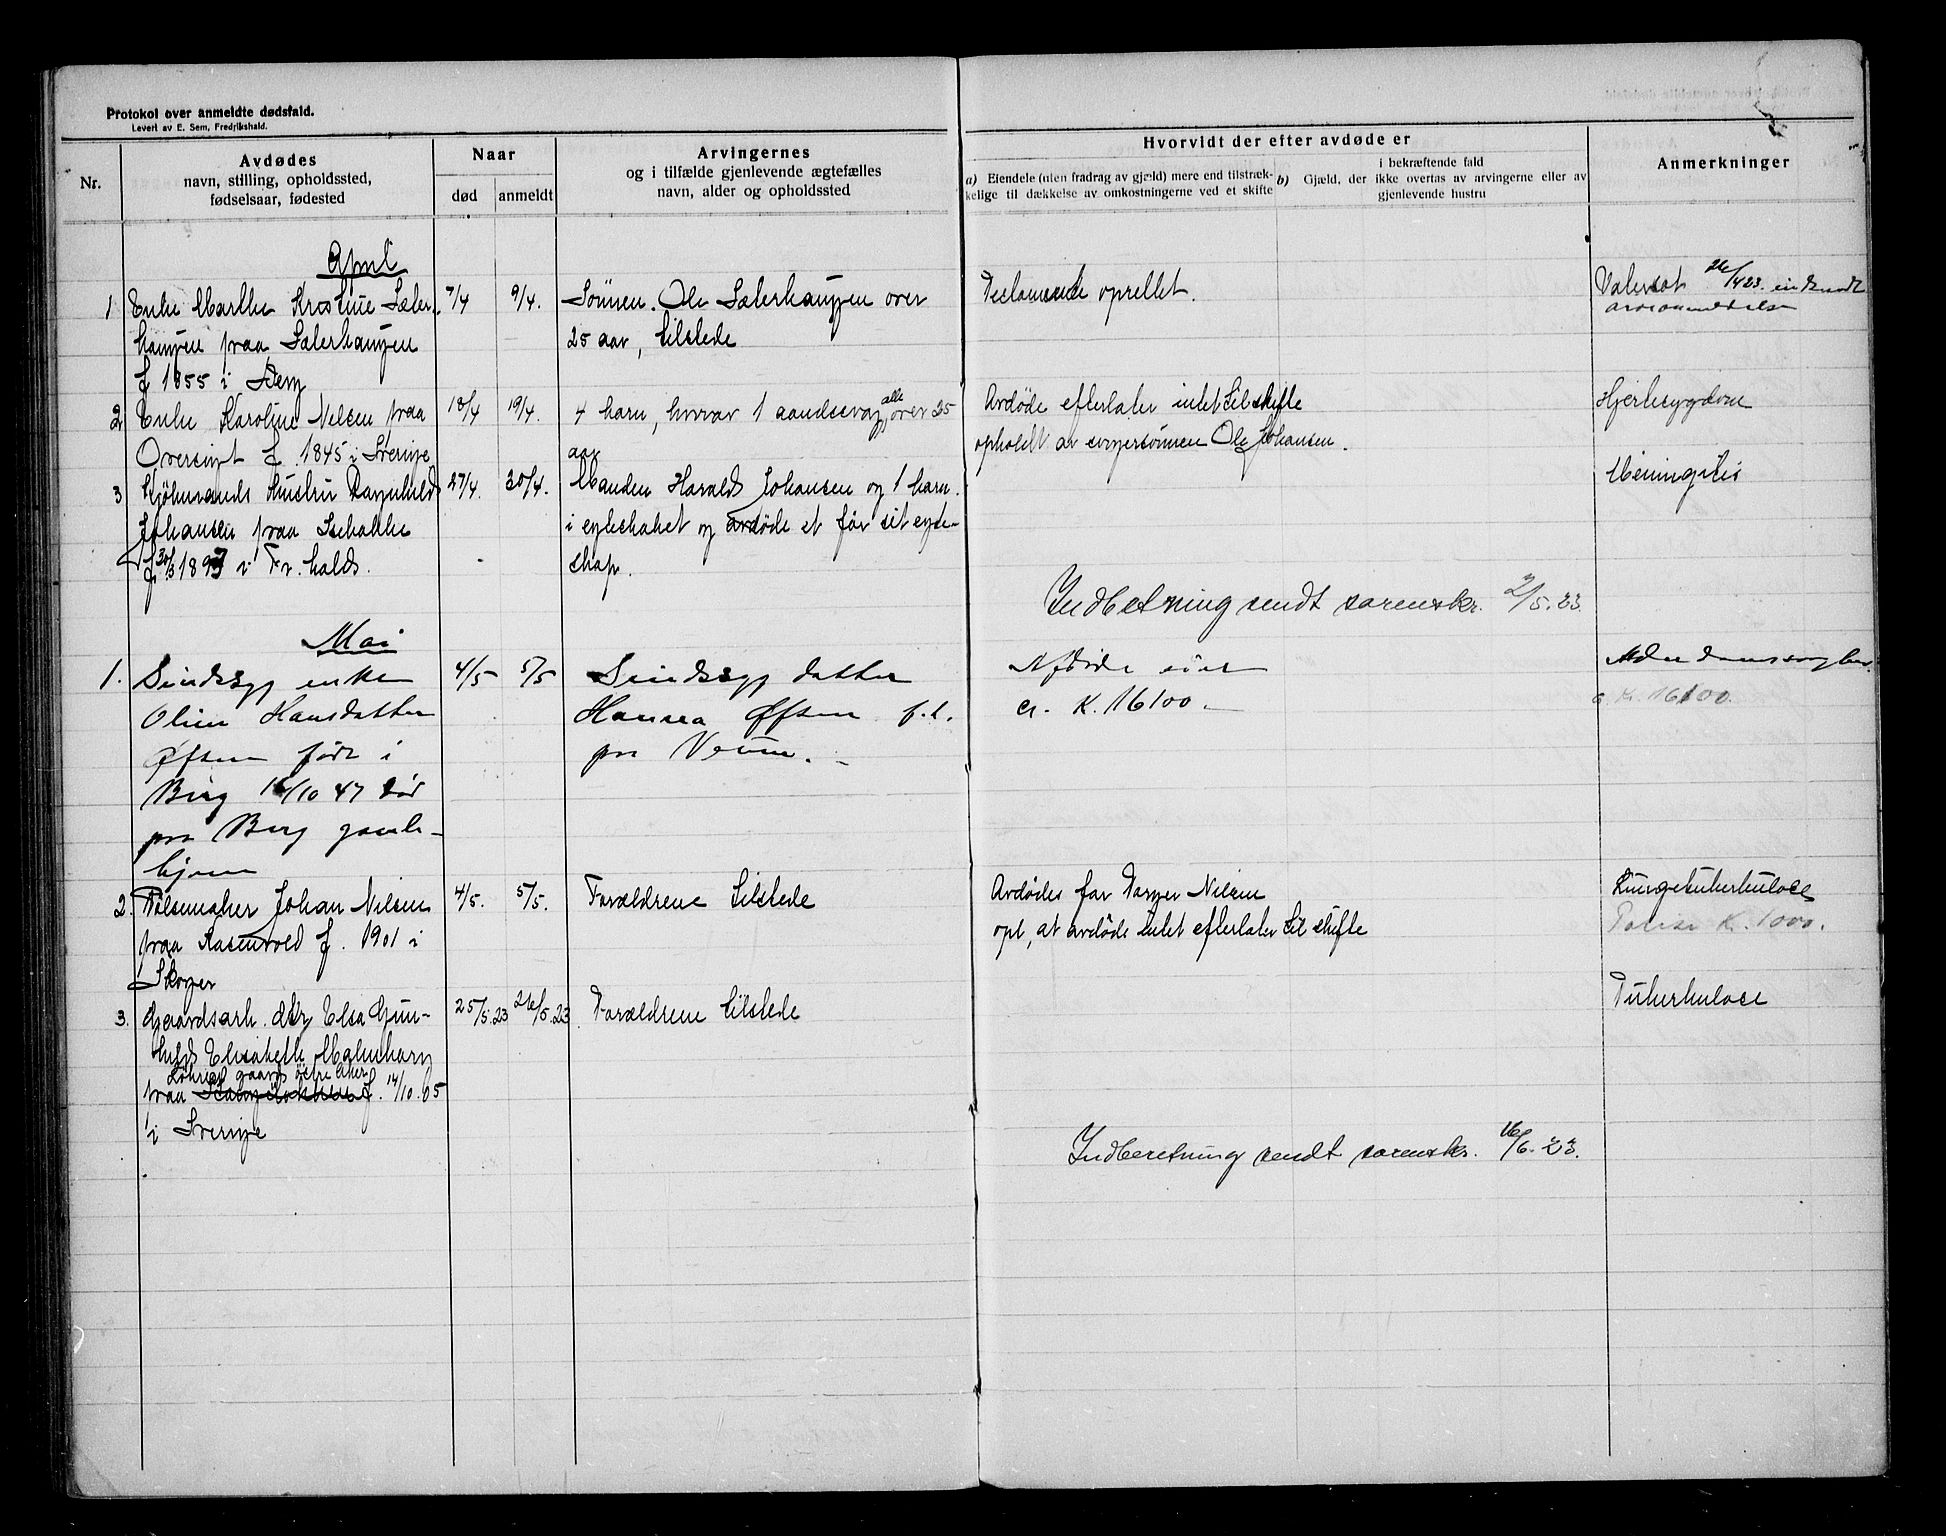 Protokol over anmeldte dødsfald.
Levert av E. Sem, Fredrikshald.
Nr.
Avdødes
navn, stilling, opholdssted,
fødselsaar, fødested
Naar
død
anmeldt
Arvingernes
og i tilfælde gjenlevende ægtefælles
navn, alder og opholdssted
Hvorvidt der efter avdøde er
a) Eiendele (uten fradrag av gjæld) mere end tilstræk-
kelige til dækkelse av omkostningerne ved et skifte
i bekræftende fald
b) Gjæld, der ikke overtas av arvingerne eller av
gjenlevende hustru
Anmerkninger
April
1 Enke Marthe Kristine Sæter-
haugen paa Sæterhaugen
f 1855 i Berg
7/4
9/4.
Sønnen. Ole Sæterhaugen over
25 aar, tilstede
Testamente oprettet.
26/4 23. indsendt
2 Enke Karoline Nilsen paa
f. 1845 i Sverige
18/4
19/4.
4 barn, hvorav 1 aandssvag, alle over 25
aar
Avdøde efterlater intet til skifte
opholdt av svigersønnen Ole Johansen.
Hjertesygdom
3 Hustru Ragnhild
Johansen paa
f 30/3 1893 i Fr.hald.
27/4.
30/4.
Manden Harald Johansen og 1 barn.
i egteskabet og avdøde et før sit egte-
skap.
Meningitis
Indberetning sendt sorenskr. 2/5.23.
Mai
1. Sindssyg enke
Oline Hansdatter
Øfsen født i
Berg 16/10 47 død
paa Berg gamle-
hjem
4/5
5/5
Sindssyg datter
Hansea Øfsen f. t.
paa Veum.
Afdøde eier
ca. K. 16100.-
K. 16100.
2. Pølsemaker Johan Nilsen
paa Rosenvold f. 1901 i
Skoger
4/5.
5/5.
Forældrene tilstede
Avdødes far Torger Nilsen
opl, at avdøde intet efterlater til skifte
Lungetuberkulose
Polise K. 1000.
3. Gaardsarb. dtr Elsa Gun-
hild Elisabeth Malmborn
gaard østre Aker
paa f. 14/10.05
i Sverige
25/5.23
26/5.23
Forældrene tilstede
Tuberkulose
Indberetning sendt sorenskr. 16/6.23.